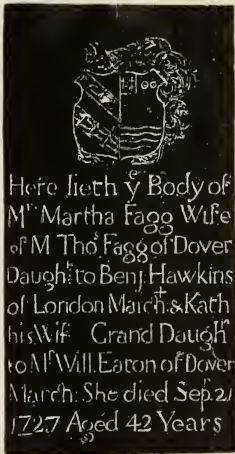 Here lieth yᵉ Body of
Mʳˢ Martha Fagg Wife
of M Thoˢ Fagg of Dover
Daughᵗ to Benj. Hawkins
of London March.ᵗ & Kath
his Wif Grand Daughʳ
to Mʳ Will. Eaton of Dover
March: She died Sep. 21
1727 Aged 42 Years